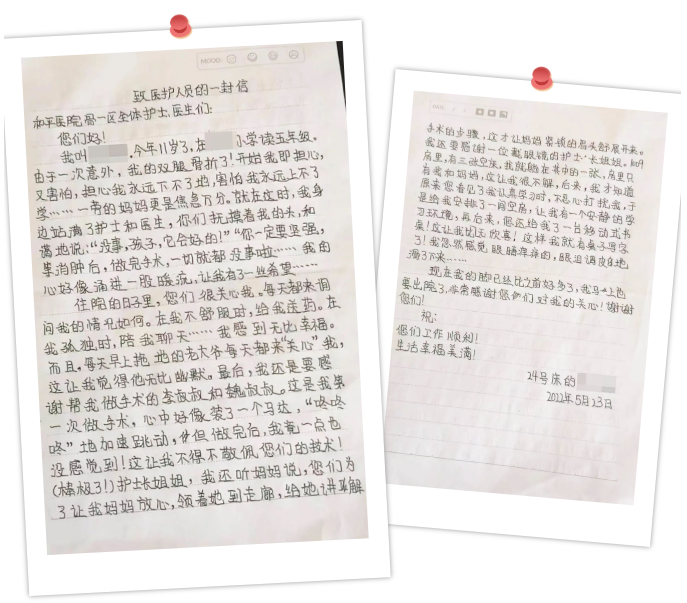 MOOD:
致医护人员的一封信
和平医院骨一区全体护士、医生们:
您们好!
我叫 ,今年11岁了,在 小学读五年级。
由于一次意外,我的双腿骨折了!开始我即担心,
又害怕,担心我永远下不了地,害怕我永远上不了
学……一旁的妈妈更是焦急万分。就在这时,我身
边站满了护士和医生,你们抚摸着我的头,和
蔼地说:“没事,孩子,它会好的!”“你一定要坚强,
等消肿后,做完手术,一切就都没事啦……我的
心好像涌进一股暖流,让我有了一丝希望……
住院的日子里,您们很关心我。每天都来询
问我的情况如何。在我不舒服时,给我送药。在
我孤独时,陪我聊天……我感到无比幸福。
而且,每天早上拖地的老大爷每天都来“关心”我,
这让我觉得他无比幽默。最后,我还是要感
谢帮我做手术的李叔叔和魏叔叔。这是我第
一次做手术,心中好像装了一个马达,“咚咚
咚”地加速跳动,但做完后,我竟一点也
没感觉到!这让我不得不敬佩您们的技术!
(棒极了!)护士长姐姐,我还听妈妈说,您们为
了让我妈妈放心,领着她到走廊,给她讲解
手术的步骤,这才让妈妈紧锁的眉头舒展开来。
我还要感谢一位戴眼镜的护士长姐姐。
房里,有三张空床,我就躺在其中的一张,房里只
有我和妈妈,这让我很不解,后来,我才知道
原来您看见了我认真学习时,不忍心打扰我,于
是给我安排了一间空房,让我有一个安静的学
习环境,再后来,您还给我了一片移动式书
桌!这让我更欣喜!这样我就有桌子写字
了!我忽然感觉眼睛痒痒的,眼泪调皮地
滴下来……
现在我的脚已经比之前好多了,我马上也
要出院了,非常感谢您们对我的关心!谢谢
您们!
祝:
您们工作顺利!
生活幸福美满!
24号床的
2022年5月23日